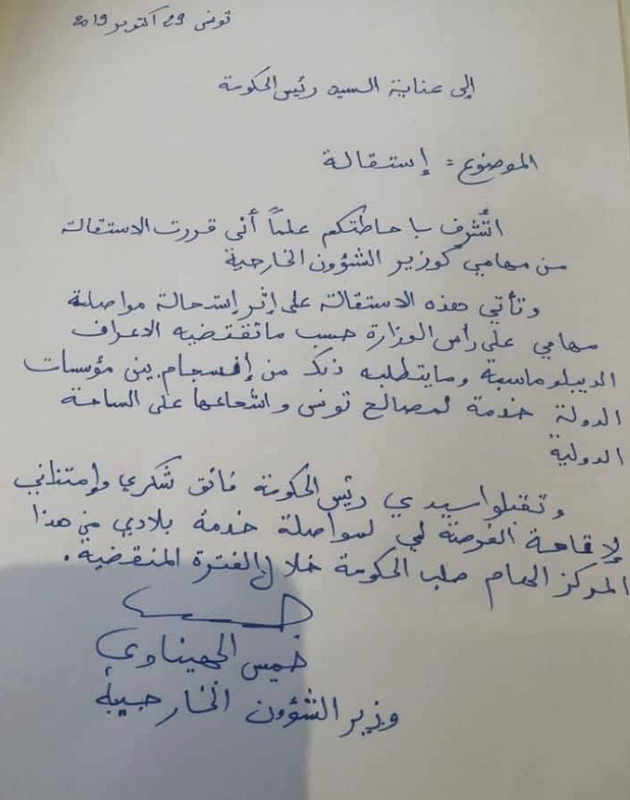 تونس 29 أكتوبر 2019
إلى عناية السيد رئيس الحكومة
الموضوع = إستقالة
أتشرف بإحاطتكم علماً أني قررت الاستقالة
من مهامي كوزير الشؤون الخارجية
وتأتي هذه الاستقالة على إثر إستحالة مواصلة
مهامي على رأس الوزارة حسب ماتقتضيه الاعراف
الديبلوماسية ومايتطلبه ذلك من إنسجام بين مؤسسات
الدولة خدمة لمصالح تونس واشعاعها على الساحة
الدولية
وتقبلوا سيدي رئيس الحكومة فائق شكري وإمتناني
لإتاحة الفرصة لي لمواصلة خدمة بلادي من هذا
المركز الهام صلب الحكومة خلال الفترة المنقضية.
خميس الجهيناوي
وزير الشؤون الخارجية